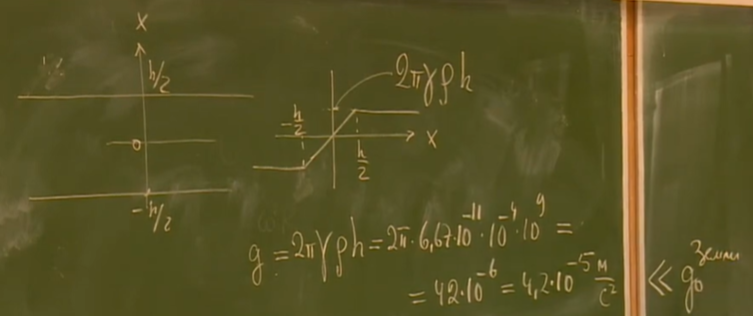 X
h/2
0
-h/2
2πγρh
-h/2
h/2
X
g = 2πγρh = 2π·6,67·10⁻¹¹·10⁻⁴·10⁹ =
= 42·10⁻⁶ = 4,2·10⁻⁵ м/с² ≪ g₀ Земли